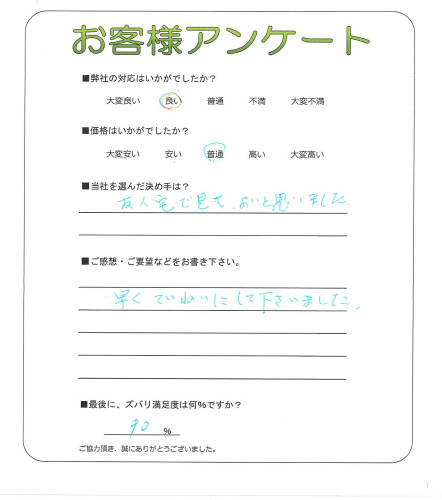 お客様アンケート
■弊社の対応はいかがでしたか？
大変良い 良い 普通 不満 大変不満
■価格はいかがでしたか？
大変安い 安い 普通 高い 大変高い
■当社を選んだ決め手は？
友人宅で見て、よいと思いました
■ご感想・ご要望などをお書き下さい。
早くていねいにして下さいました。
■最後に、ズバリ満足度は何%ですか？
90 %
ご協力頂き、誠にありがとうございました。